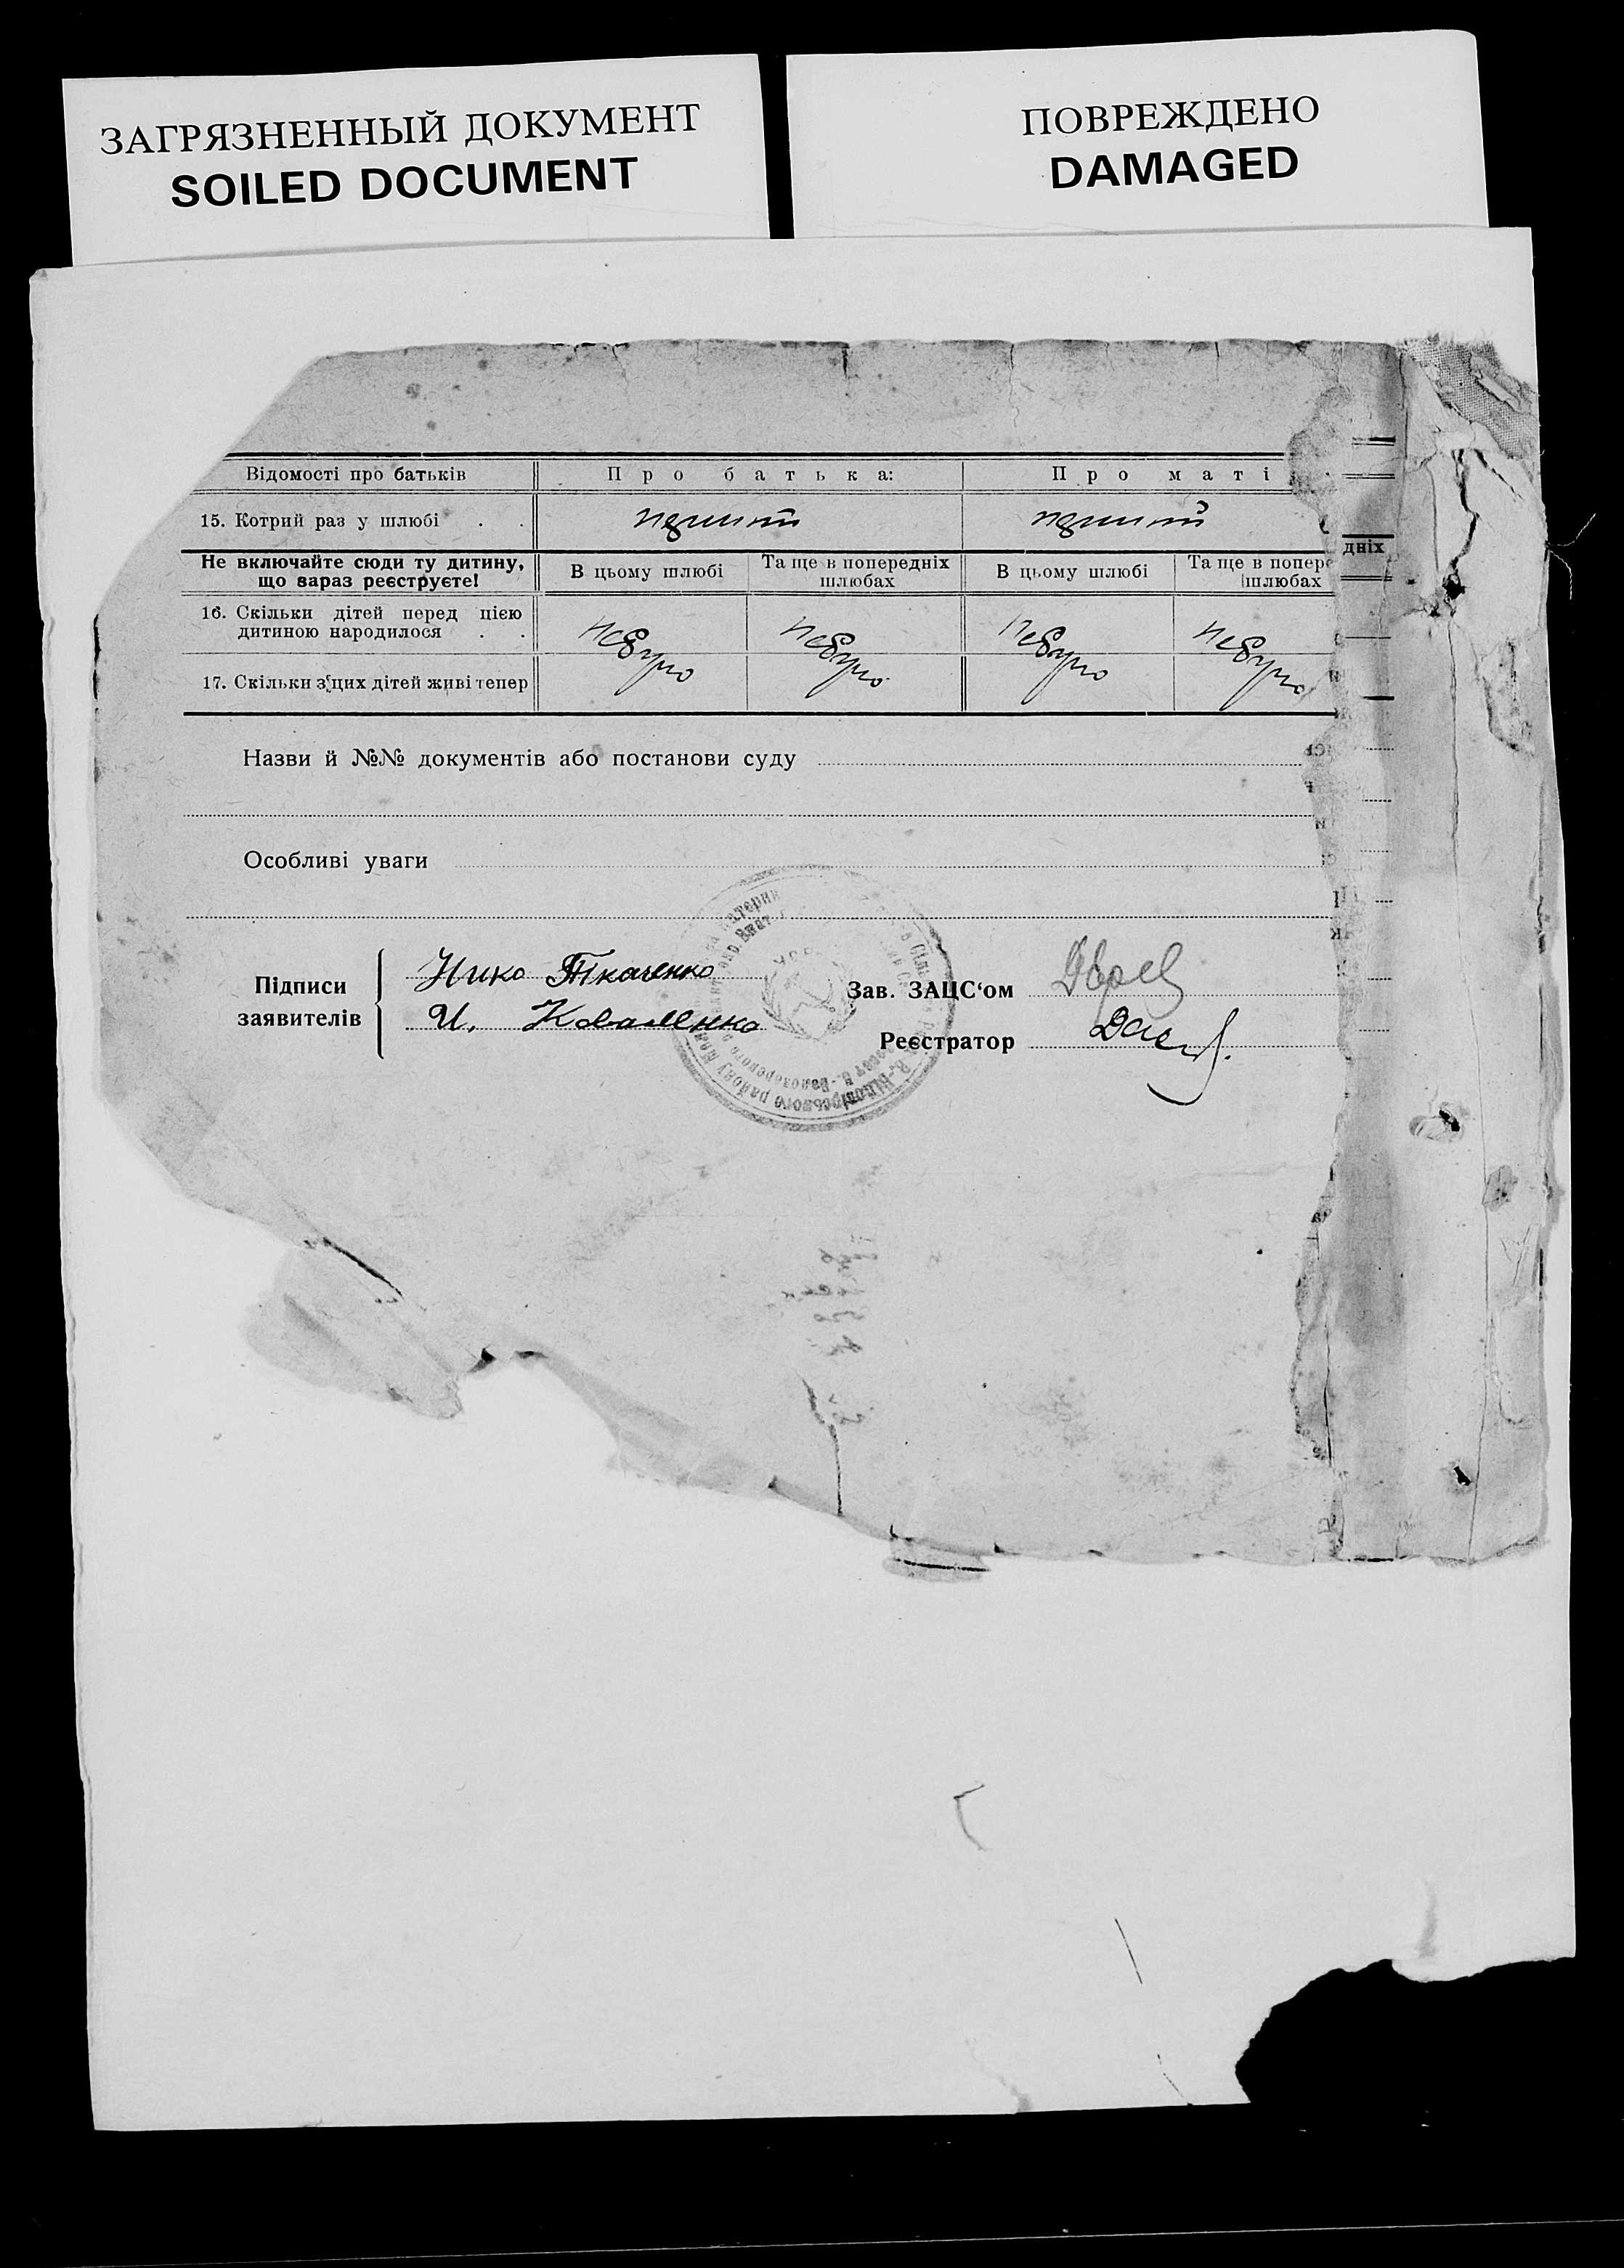 ЗАГРЯЗНЕННЫЙ ДОКУМЕНТ
SOILED DOCUMENT
ПОВРЕЖДЕНО
DAMAGED
Відомості про батьків
Про батька:
Про маті
15. Котрий раз у шлюбі . .
перший
перший
Не включайте сюди ту дитину,
що вараз реєструєте!
В цьому шлюбі
Та ще в попередніх
шлюбах
В цьому шлюбі
Та ще в попере
шлюбах
дніх
16. Скільки дітей перед цією
дитиною народилося . .
небуло
небуло
небуло
небуло
17. Скільки з цих дітей живі тепер
Назви й №№ документів або постанови суду
Особливі уваги
Підписи
заявителів
Ткаченко
И. Коваленко
Зав. ЗАЦС‘ом
Реєстратор
УСРР